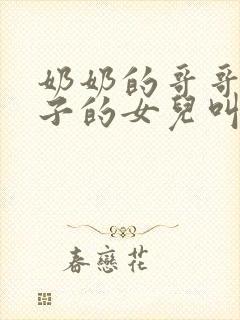 奶奶的哥哥
子的女兒叫
春戀花